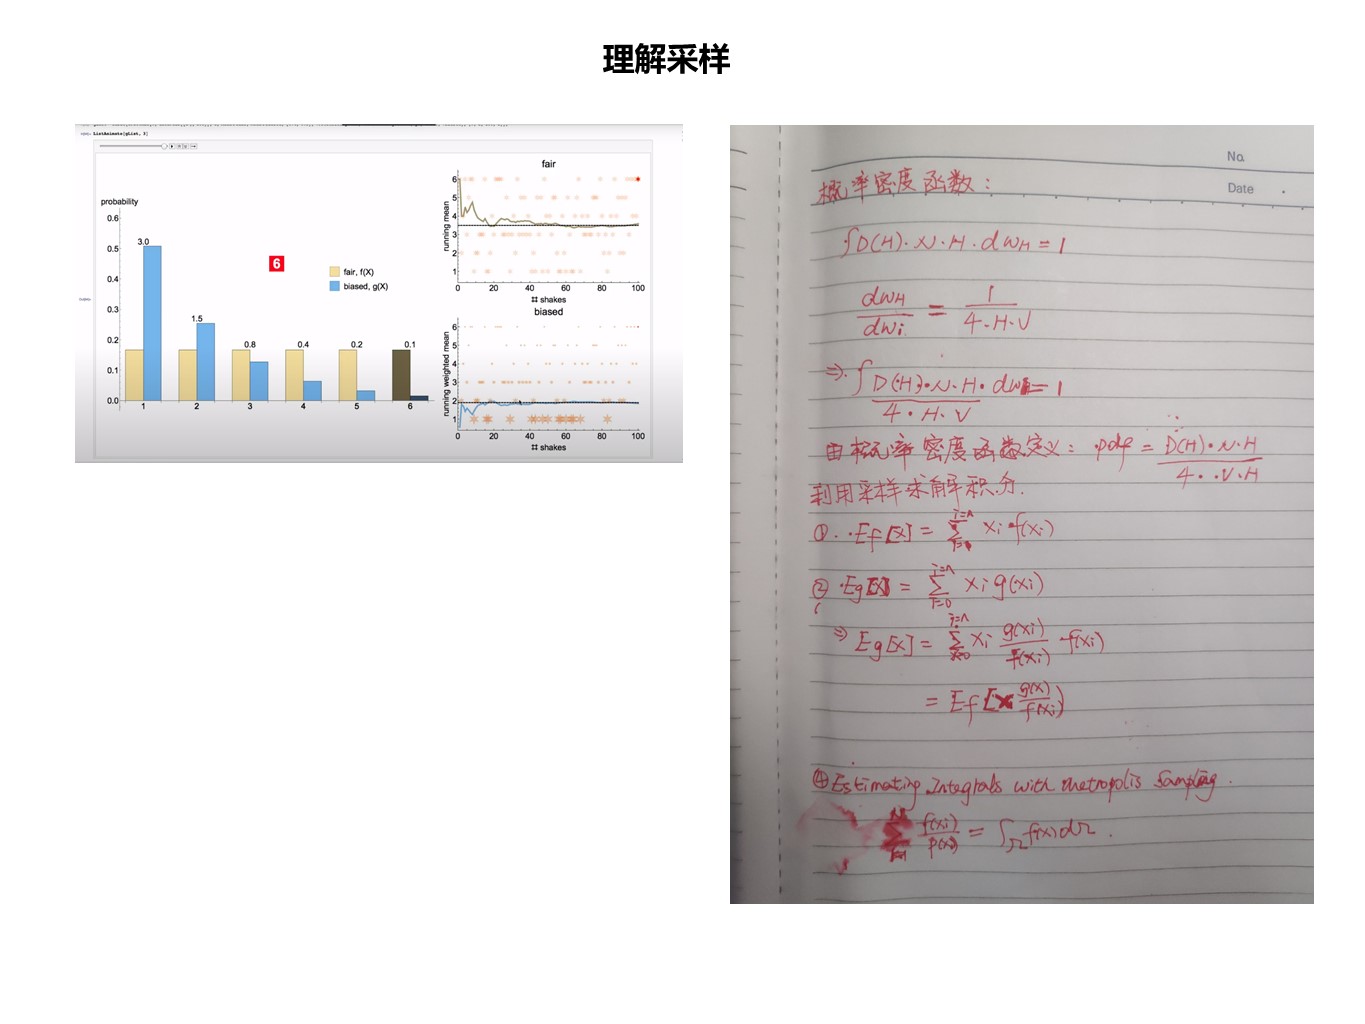 理解采样
ListAnimate[gList, 3]
probability
0.6
0.5
0.4
0.3
0.2
0.1
0.0
3.0
1.5
0.8
0.4
0.2
0.1
1 2 3 4 5 6
6
fair, f(X)
biased, g(X)
fair
running mean
6
5
4
3
2
1
0 20 40 60 80 100
# shakes
biased
running weighted mean
6
5
4
3
2
1
0 20 40 60 80 100
# shakes
No.
Date
概率密度函数：
∫D(H)·N·H·dωH = 1
dωH/dωi = 1/(4·H·V)
⇒ ∫ D(H)·N·H/(4·H·V) · dωi = 1
由概率密度函数定义：pdf = D(H)·N·H/(4·V·H)
利用采样求解积分.
① Ef[X] = Σ xi f(xi)
② Eg[X] = Σ i=0 i=n xi g(xi)
⇒ Eg[X] = Σ xi g(xi)/f(xi) f(xi)
= Ef[X g(x)/f(xi)]
④ Estimating Integrals with metropolis sampling.
Σ f(xi)/p(xi) = ∫Ω f(x)dΩ.